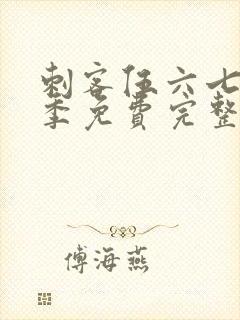 刺客伍六七
季免費完整
傅海燕